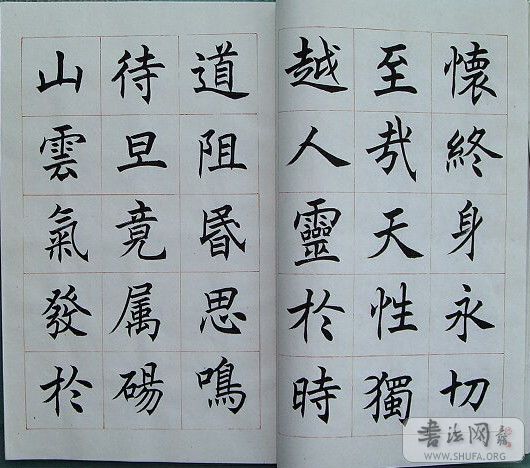 懷終身永切
至哉天性獨
越人靈於時
道阻昬思鳴
待旦竟属碭
山雲氣發於
書法网
WWW.SHUFA.ORG